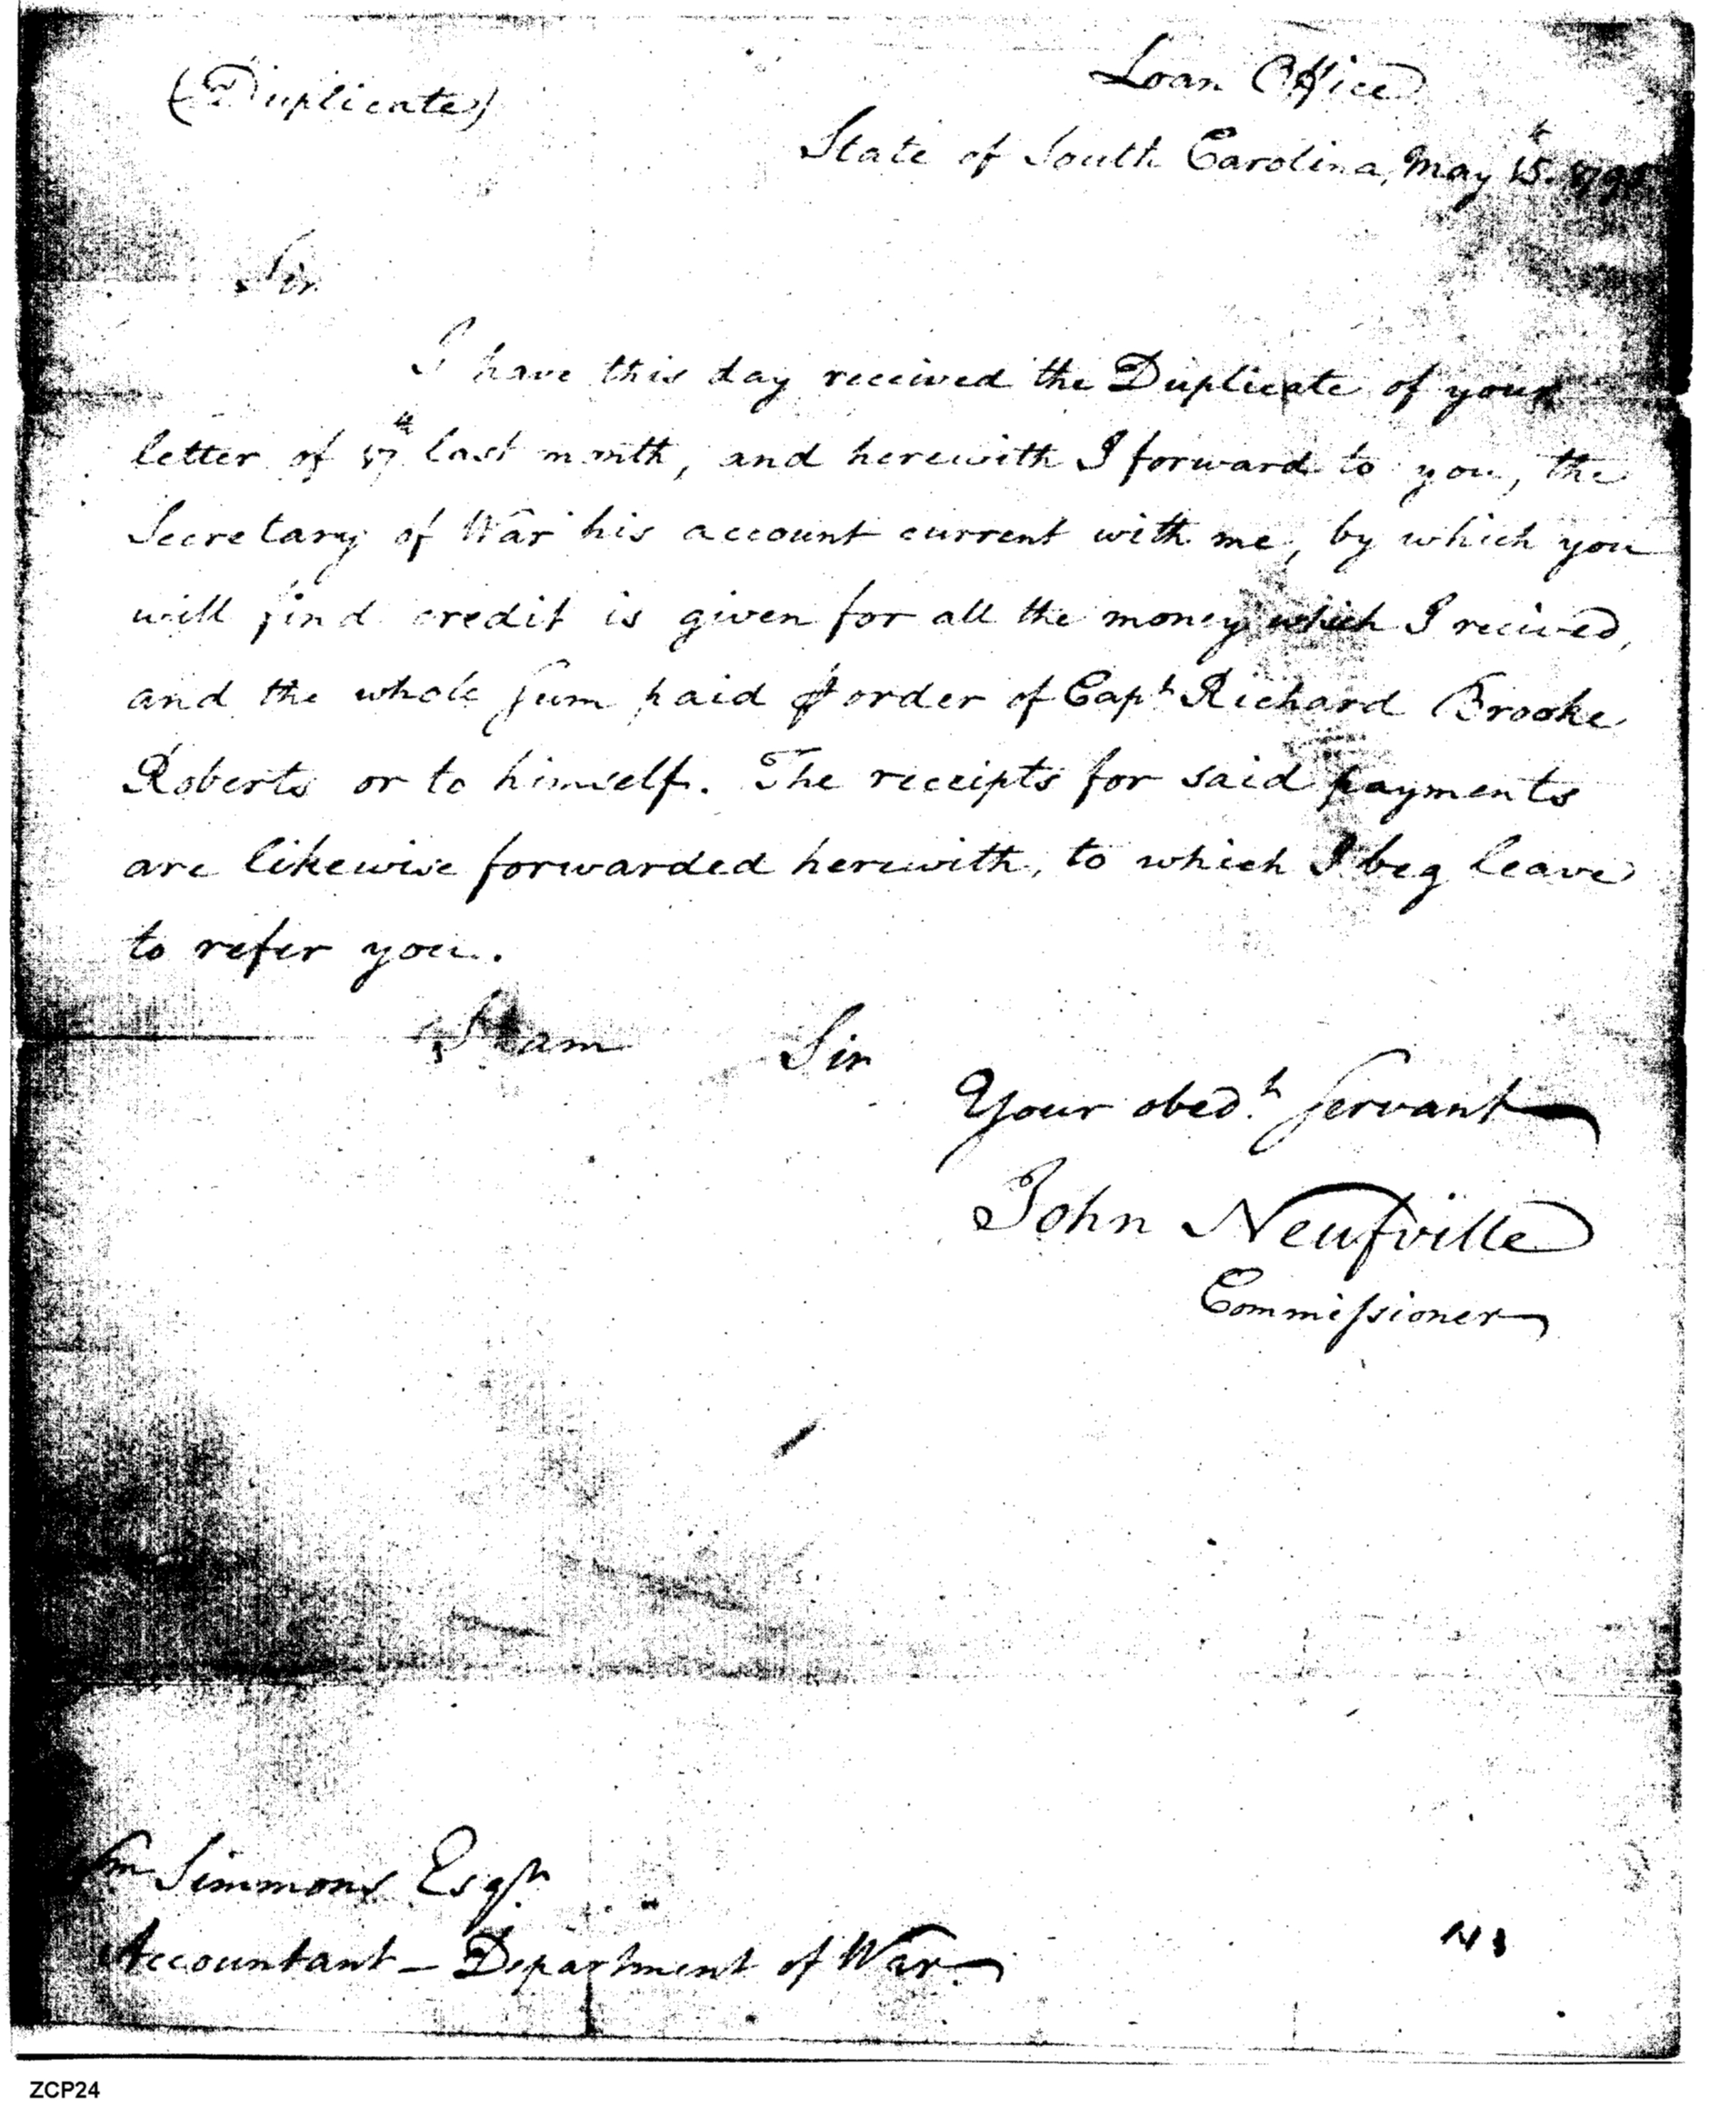 (Duplicate)
Loan Office
State of South Carolina, May 15th 1795
Sir
I have this day received the Duplicate of your
letter of 17th last month, and herewith I forward to you, the
Secretary of War his account current with me, by which you
will find credit is given for all the money which I recived,
and the whole sum paid ⅌ order of Capt Richard Brooke
Roberts or to himself. The receipts for said payments
are likewise forwarded herewith, to which I beg leave
to refer you.
I am Sir
Your obedt. servant
John Neufville
Commissioner
Wm Simmons Esqr.
Accountant - Department of War.
ZCP24